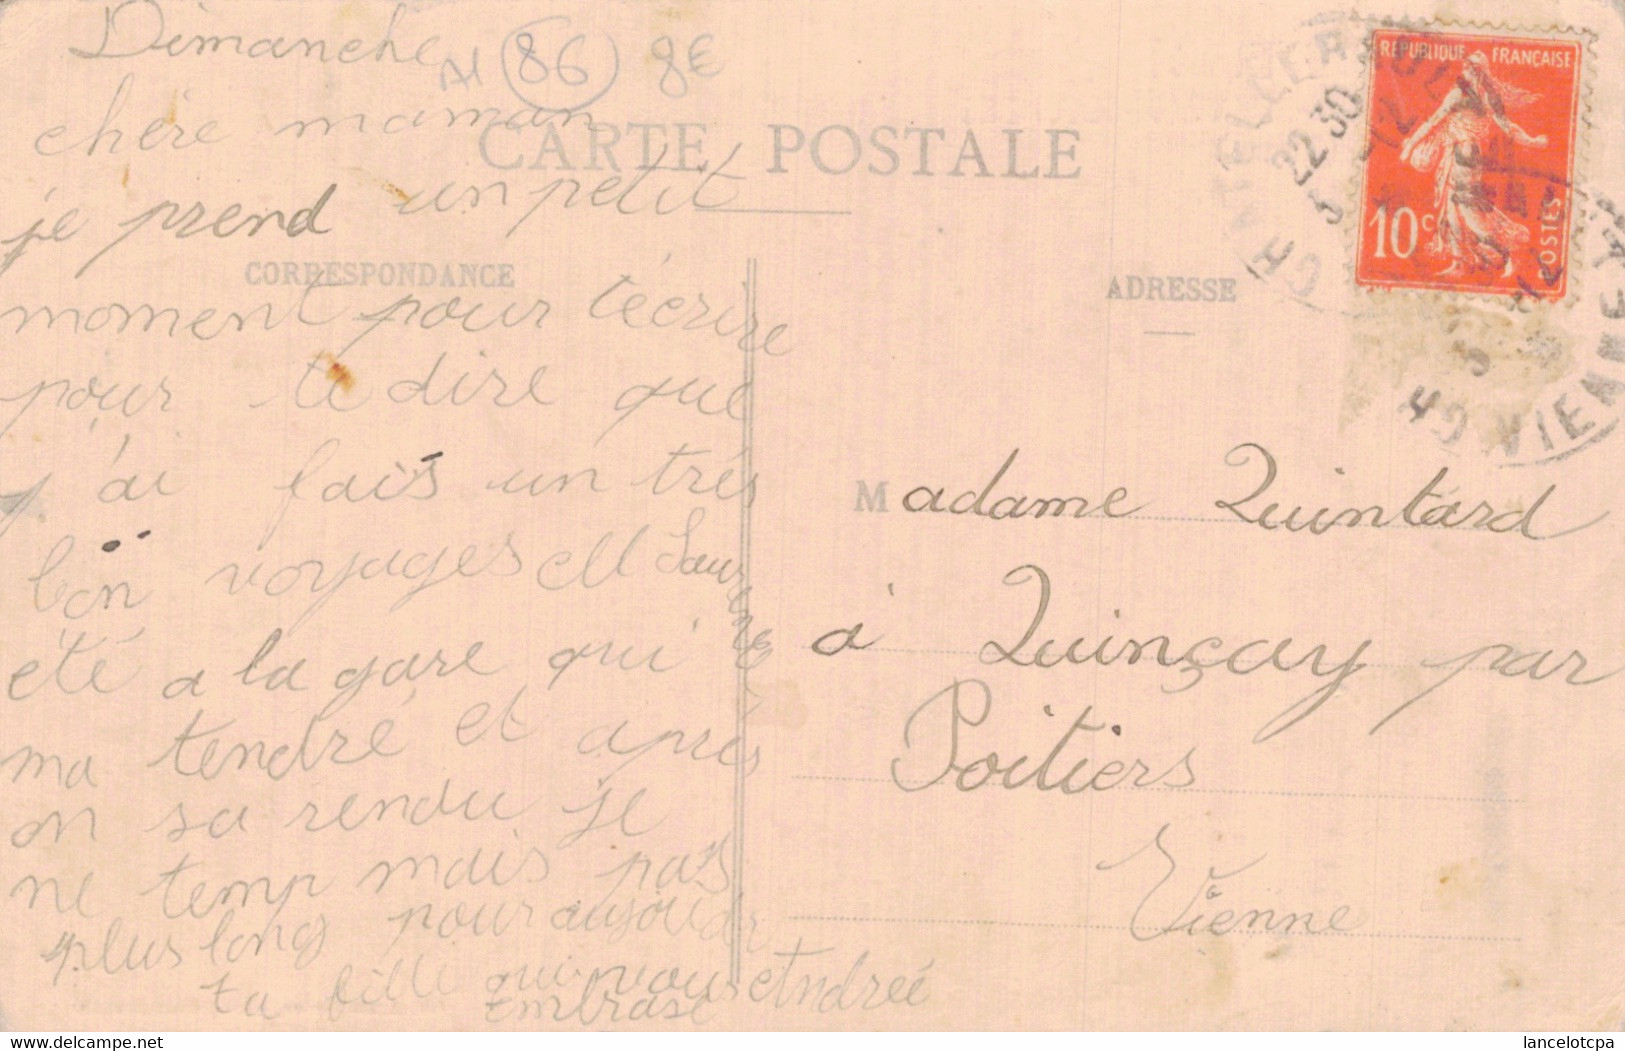 Dimanche
A1 86 8€
chère maman
CARTE POSTALE
je prend un petit
CORRESPONDANCE
moment pour técrire
pour te dire que
j'ai fais un très
bon voyages ell Laurine
été a la gare qui
ma tendré et après
on sa rendu je
ne temp mais pas
plus long pour aujourdr
ta fille qui vous
embrase Andréé
ADRESSE
Madame Quintard
à Quinçay par
Poitiers
Vienne
REPUBLIQUE FRANÇAISE
10c
POSTES
CHATELLERAULT
22 30
VIENNE
lancelotcpa
www.delcampe.net